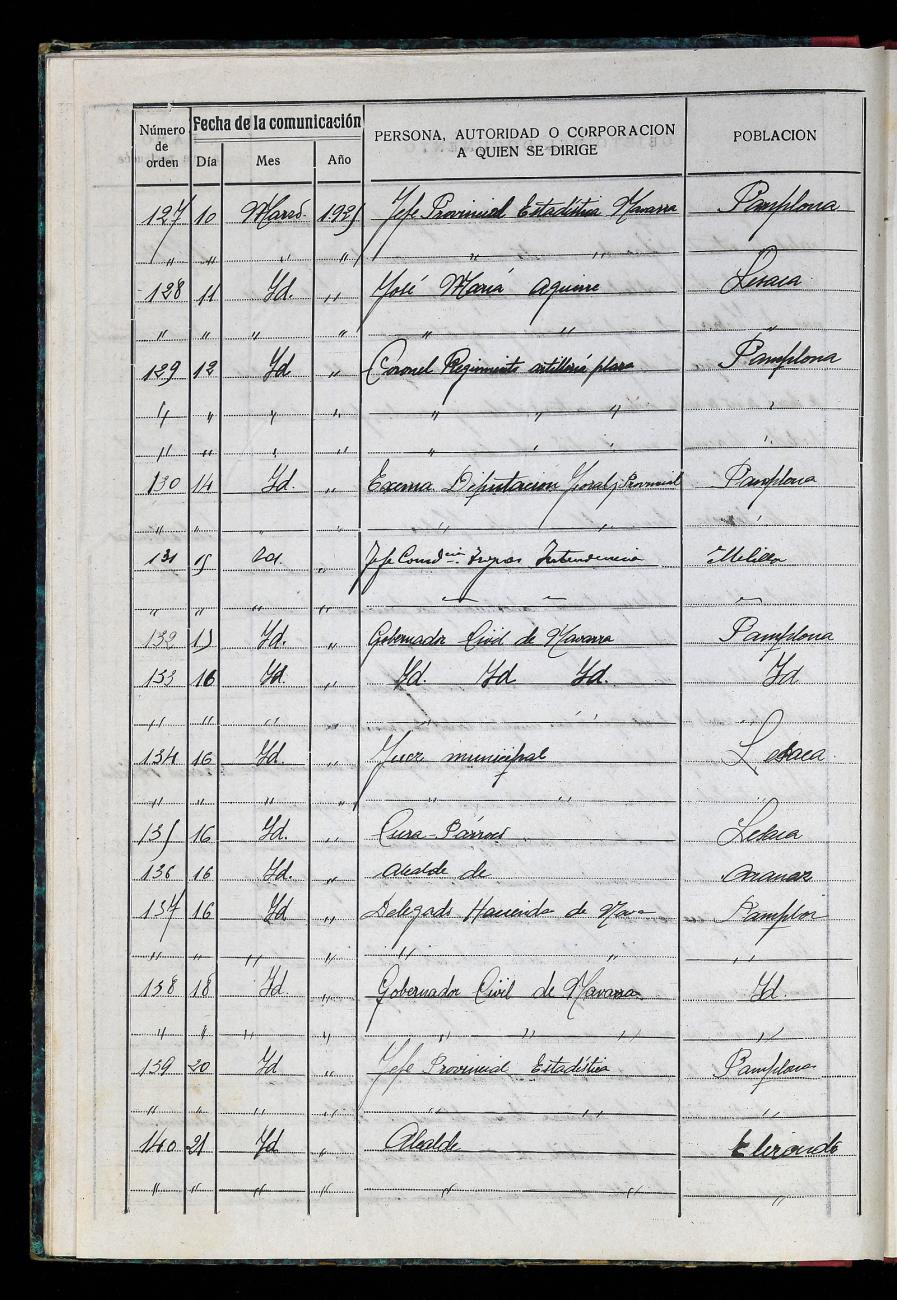 Número de orden Fecha de la comunicación PERSONA, AUTORIDAD O CORPORACION A QUIEN SE DIRIGE POBLACION
Día Mes Año
127 10 Marzo 1925 Jefe Provincial Estadística Navarra Pamplona
" " " " " "
128 11 Id. " José María Aguirre Lesaca
" " " " " " "
129 12 Id " Coronel Regimiento artillería plaza Pamplona
" " " " " " " "
" " " " " " " "
130 14 Id. " Excma. Diputacion Foral y Provincial Pamplona
" " " " " " "
131 15 Id. " Jefe Intendencia Melilla
" " " " " " "
132 15 Id. " Gobernador Civil de Navarra Pamplona
133 16 Id. " Id. Id Id. Id
" " " " " " " "
134 16 Id. " Juez municipal Lesaca
" " " " " " "
135 16 Id. " Cura-Párroco Lesaca
136 16 Id. " Alcalde de Aranaz
137 16 Id " Delegado Hacienda de Nava Pamplo
" " " " " " "
138 18 Id. " Gobernador Civil de Navarra. Id.
" " " " " " " "
139 20 Id " Jefe Provincial Estadística Pamplona
" " " " " " "
140 21 Id " Alcalde Elizondo
" " " " " " "